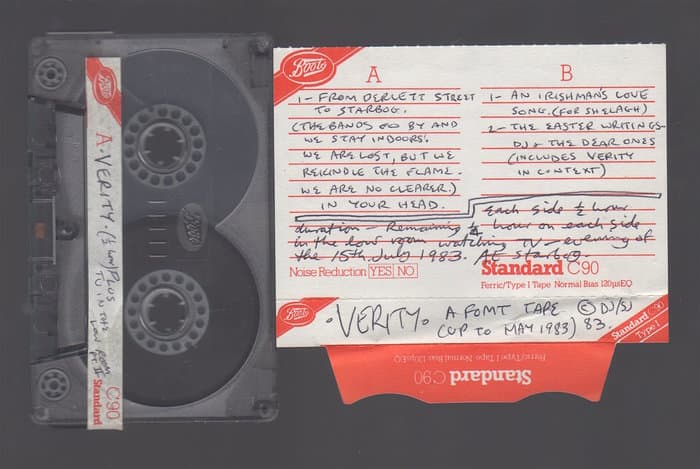 Boots
A · VERITY. (½ PLUS
TV IN THE
LOW ROOM
PT II
Standard C90
Boots
A
1 - FROM DERLETT STREET
TO STARBOG.
(THE BANDS GO BY AND
WE STAY INDOORS.
WE ARE LOST, BUT WE
REKINDLE THE FLAME.
WE ARE NO CLEARER.)
IN YOUR HEAD.
B
1 - AN IRISHMAN'S LOVE
SONG. (FOR SHELAGH)
2 - THE EASTER WRITINGS -
DJ + THE DEAR ONES
(INCLUDES VERITY
IN CONTEXT)
Each side ½ hour
duration - Remaining ¼ hour on each side
in the low room watching TV - evening of
the 15th July 1983. At starbog.
Noise Reduction YES NO
Standard C90
Ferric/Type I Tape Normal Bias 120µsEQ
Boots
· VERITY · A FOMT TAPE © DJ/SJ
(UP TO MAY 1983) 83.
Standard C90
Type I
Ferric/Type I Tape Normal Bias 120µsEQ
Standard C90